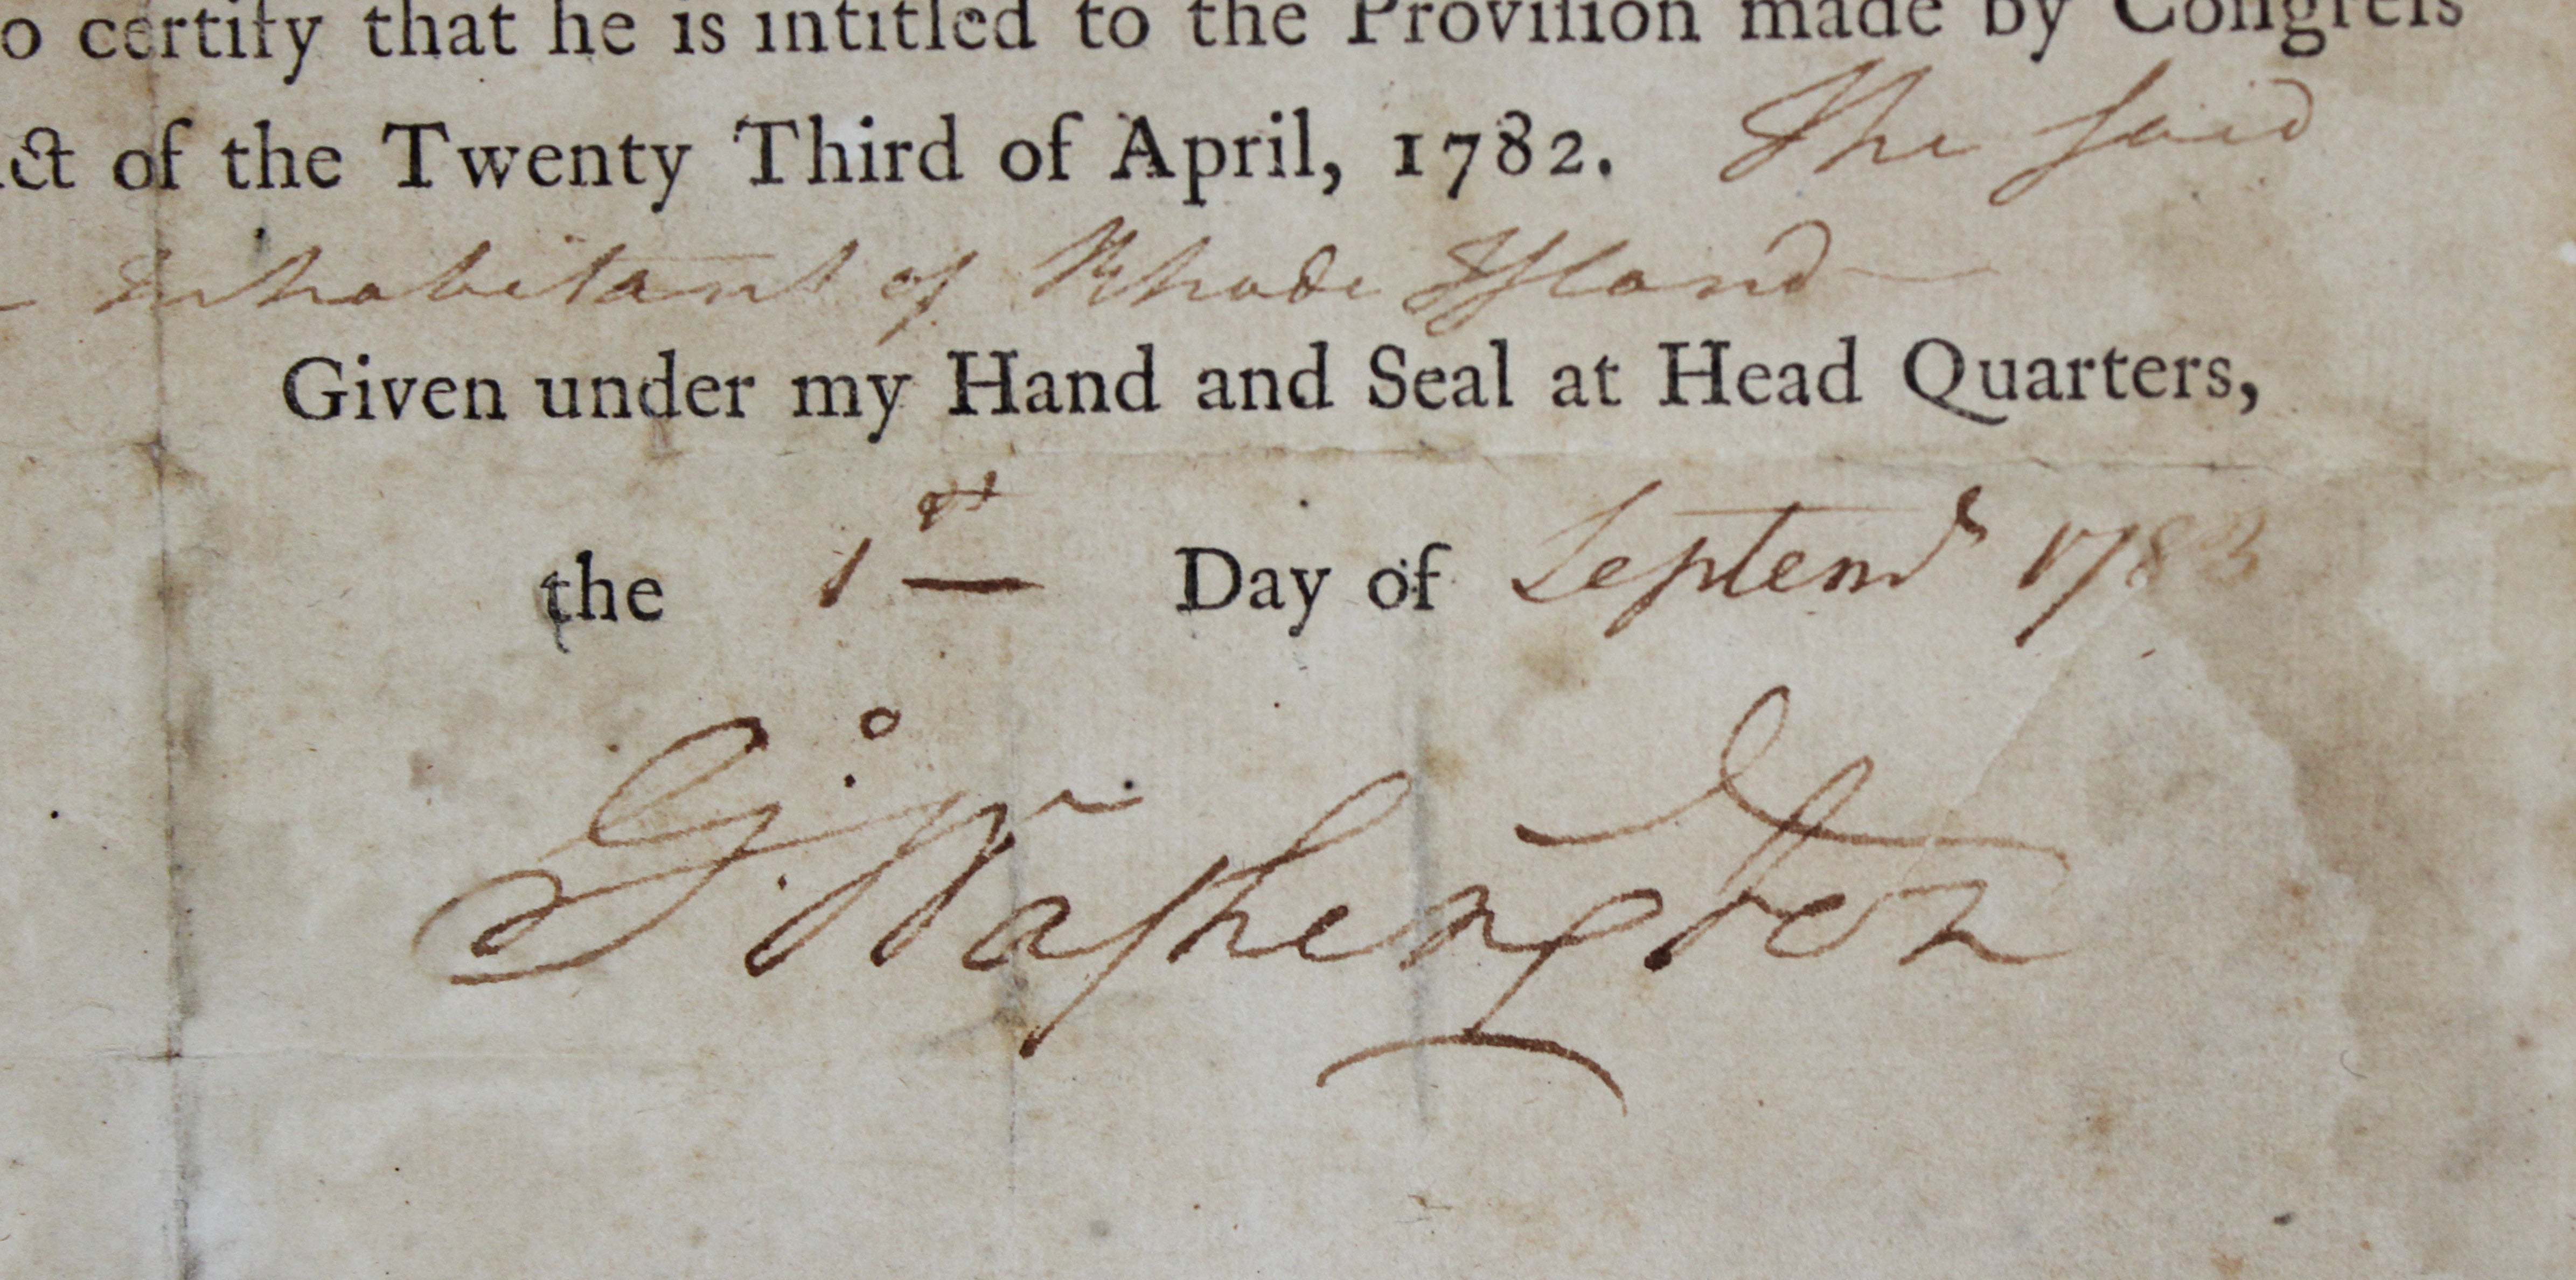 o certify that he is intitled to the Proviſion made by Congreſs
ct of the Twenty Third of April, 1782. The said
Inhabitant of Rhode Iſland
Given under my Hand and Seal at Head Quarters,
the 1st Day of Septemr 1783
Go: Waſhington